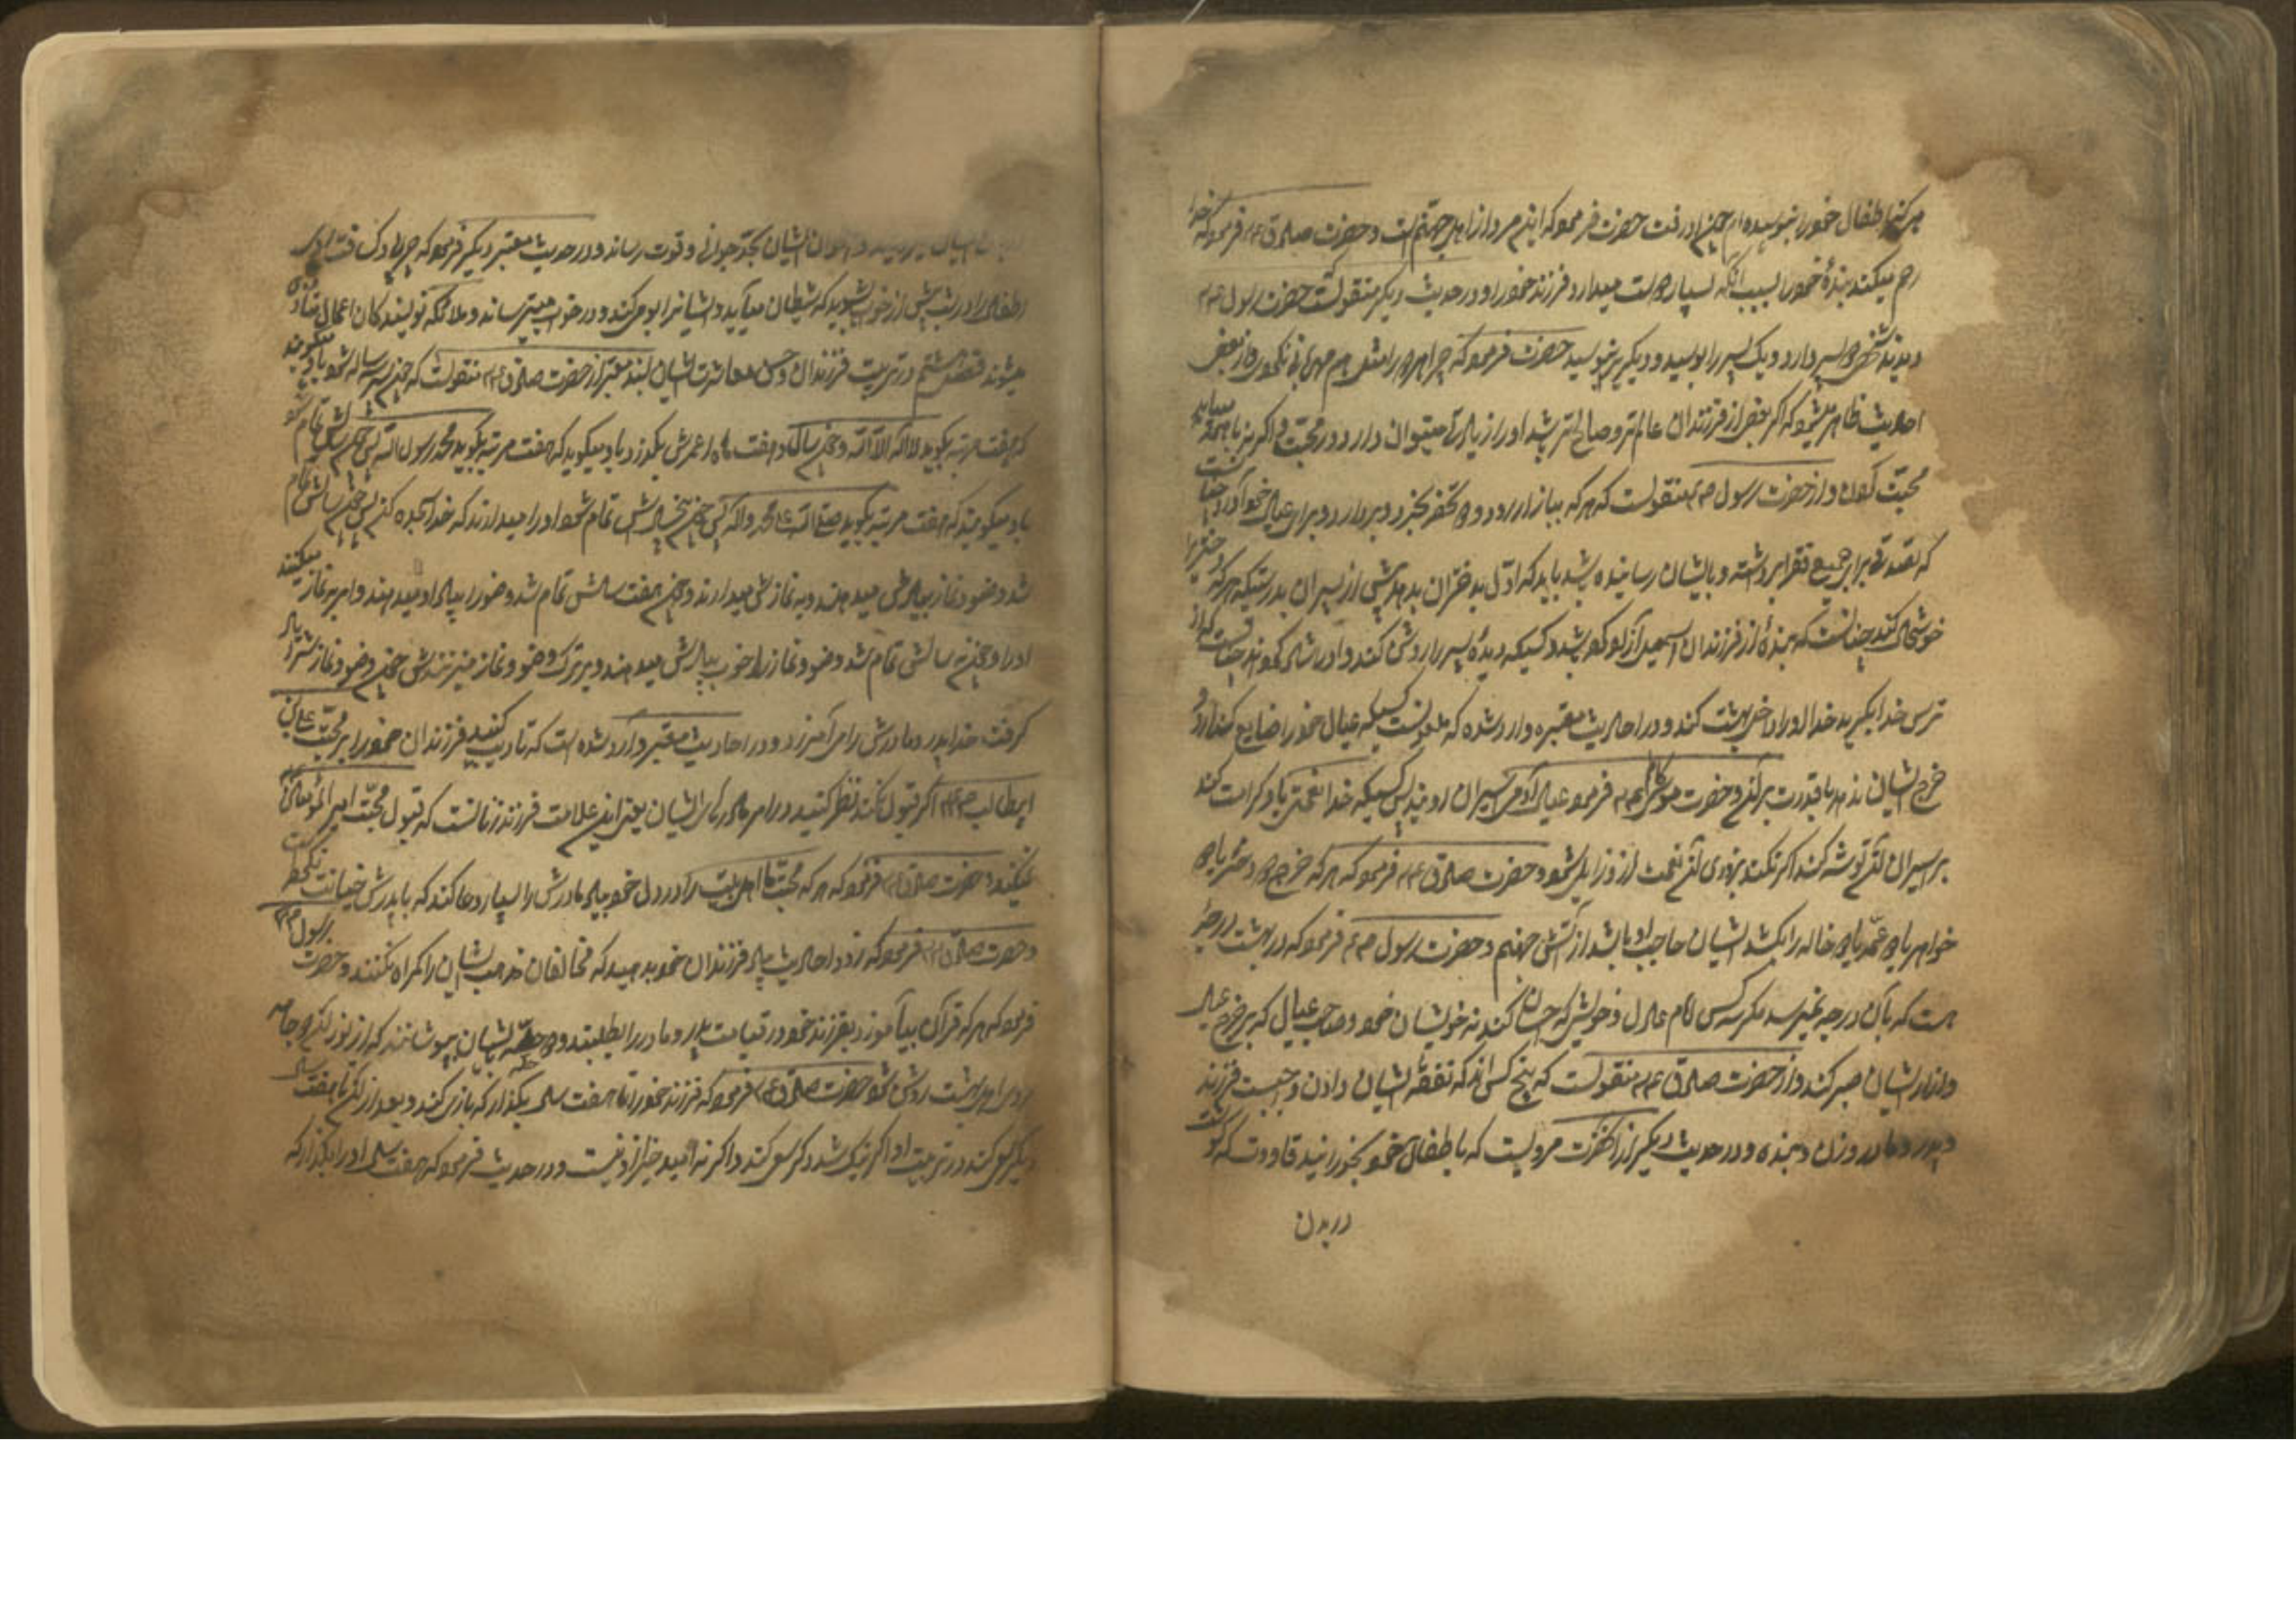 هرکز اطفال خود را نبوسیده‌ام چون او رفت حضرت فرمود که این مرد از اهل جهنم است و حضرت صادق ع فرمود که خدا
رحم میکند بندهٔ خود را بسبب آنکه بسیار دوست میدارد فرزند خود را و در حدیث دیکر منقولست حضرت رسول
دیدند شخصی دو پسر دارد و یک پسر را بوسید و دیکری را نبوسید حضرت فرمود که چرا هر دو را مثل هم مهربانی نکردی و از بعض
احادیث ظاهر میشود که اکر بعضی از فرزندان عالم‌تر و صالح‌تر باشد او را زیادتی میتوان داد در محبت و اکر نه با همه میباید
محبت کردن و از حضرت رسول ص منقولست که هرکه ببازار رود و تحفه بخرد و بردارد و برای عیال خود آورد چنانست
که تصدقی برای جمیع فقرا برداشته و بایشان رسانیده باشد باید که اول بدختران بدهد پیش از پسران بدرستیکه هرکه دختر را
خوشحال کند چنانست که بندهٔ از فرزندان اسمعیل آزاد کرده باشد و کسیکه دیدهٔ پسر را روشن کند و او را شاد کند چنانست که از
ترس خدا بکرید خدا او را داخل بهشت کند و در احادیث معتبره وارد شده که ملعونست کسیکه عیال خود را ضایع کذارد و
خرج ایشان ندهد با قدرت بر آن و حضرت موسی کاظم ع فرمود عیال آدمی اسیران اویند پس کسیکه خدا نعمتی باو کرامت کند
بر اسیران آن توشه کند اکر نکند بزودی آن نعمت از او زایل شود و حضرت صادق ع فرمود که هرکه خرج دو دختر یا دو
خواهر یا دو عمه یا دو خاله را بکشد ایشان حاجب او باشد از آتش جهنم و حضرت رسول ص فرمود که در بهشت درجهٔ
هست که بآن درجه نمیرسد مکر سه کس امام عادل و خویشی که احسان کند به خویشان خود و صاحب عیالی که بر خرج عیال
و آزار ایشان صبر کند و از حضرت صادق ع منقولست که پنج کس‌اند که نفقهٔ ایشان دادن واجبست فرزند
و پدر و مادر و زن و بنده و در حدیث دیکر از آنحضرت مرویست که باطفال خود بخورانید قاووت که کوشت
در بدن
ایشان میرویاند و استخوان ایشان بحد جوانی و قوت رساند و در حدیث معتبر دیکر فرمود که چربی و کثافت
اطفال را در شب پیش از خواب بشویید که شیطان میآید و ایشانرا بو میکند و در خواب میترساند و ملائکه نویسندکان اعمال متأذی
میشوند فصل هشتم در تربیت فرزندان و حسن معاشرت ایشان بسند معتبر از حضرت صادق ع منقولست که چون پسر سه ساله شود باو میکویند
که هفت مرتبه بکوید لا اله الا الله و چون سه سال و هفت ماه از عمرش بکذرد باو میکوید که هفت مرتبه بکوید محمد رسول الله پس چون چهار سالش تمام شود
باو میکویند که هفت مرتبه بکوید صلی الله علی محمد و آله پس چون پنج سالش تمام شود او را میدارند که خدا را سجده کند پس چون شش سالش تمام
شد وضو و نماز بیادش میدهند و به نمازش میدارند و چون هفت سالش تمام شد وضو را بیاد او میدهند و امر به نماز میکنند
او را و چون نه سالش تمام شد وضو و نماز را خوب بیادش میدهند و بر ترک وضو و نماز میزنندش چون وضو و نماز را یاد
کرفت خدا پدر و مادرش را می‌آمرزد و در احادیث معتبر وارد شده است که تادیب کنید فرزندان خود را بر محبت علی بن
ابیطالب ع اکر قبول نکند نظر کنید در امر مادرهای ایشان یعنی این علامت فرزند زنا است که قبول محبت امیر المؤمنین
نمیکند و حضرت صادق ع فرمود که هرکه محبت ما اهل بیت را در دل خود بیابد مادرش را بسیار دعا کند که با پدرش خیانت نکرده است
و حضرت صادق ع فرمود که زود احادیث بیاد فرزندان خود بدهید که مخالفان مذهب ایشان را کمراه نکنند و حضرت رسول ص
فرمود که هرکه قرآن بیاموزد بفرزند خود در قیامت پدر و مادر را بطلبند و دو حله بایشان بپوشانند که از نور آن دو جامه
روی اهل بهشت روشن شود حضرت صادق ع فرمود که فرزند خود را تا هفت سال بکذار که بازی کند و بعد از آن تا هفت سال
دیکر سعی کند در تربیت او اکر نیک شد دکر سعی کند و اکر نه امید خیر از او نیست و در حدیث فرمود که هفت سال او را بکذار که